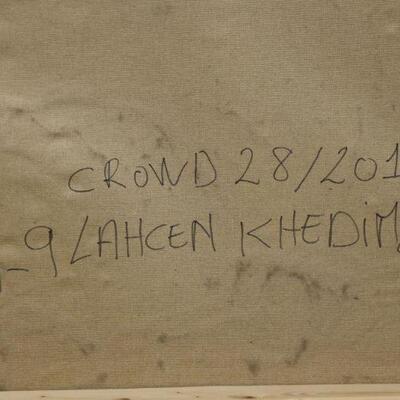 CROWD 28/201
-9 LAHCEN KHEDIM